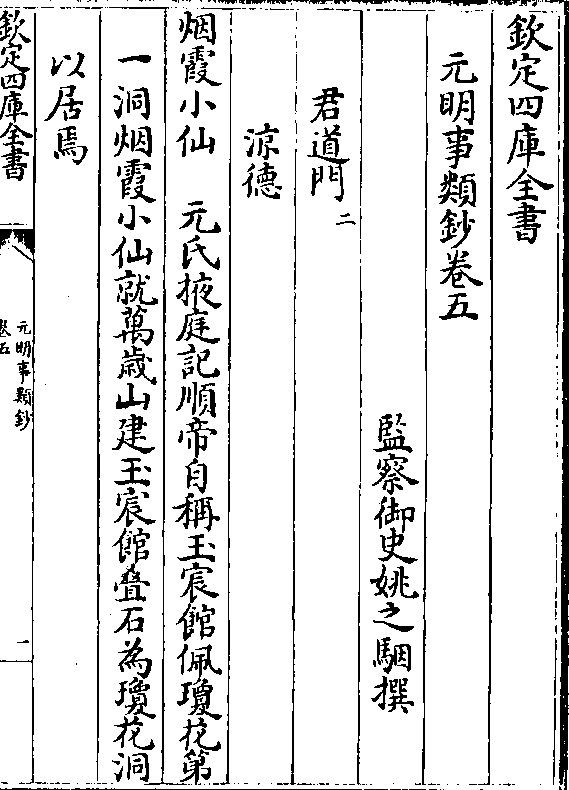 欽定四庫全書
元明事類鈔卷五
監察御史姚之駰撰
君道門二
涼德
烟霞小仙　元氏掖庭記順帝自稱玉宸館佩瓊花第
一洞烟霞小仙就萬歳山建玉宸館叠石為瓊花洞
以居焉
欽定四庫全書
元明事類鈔
卷五
一